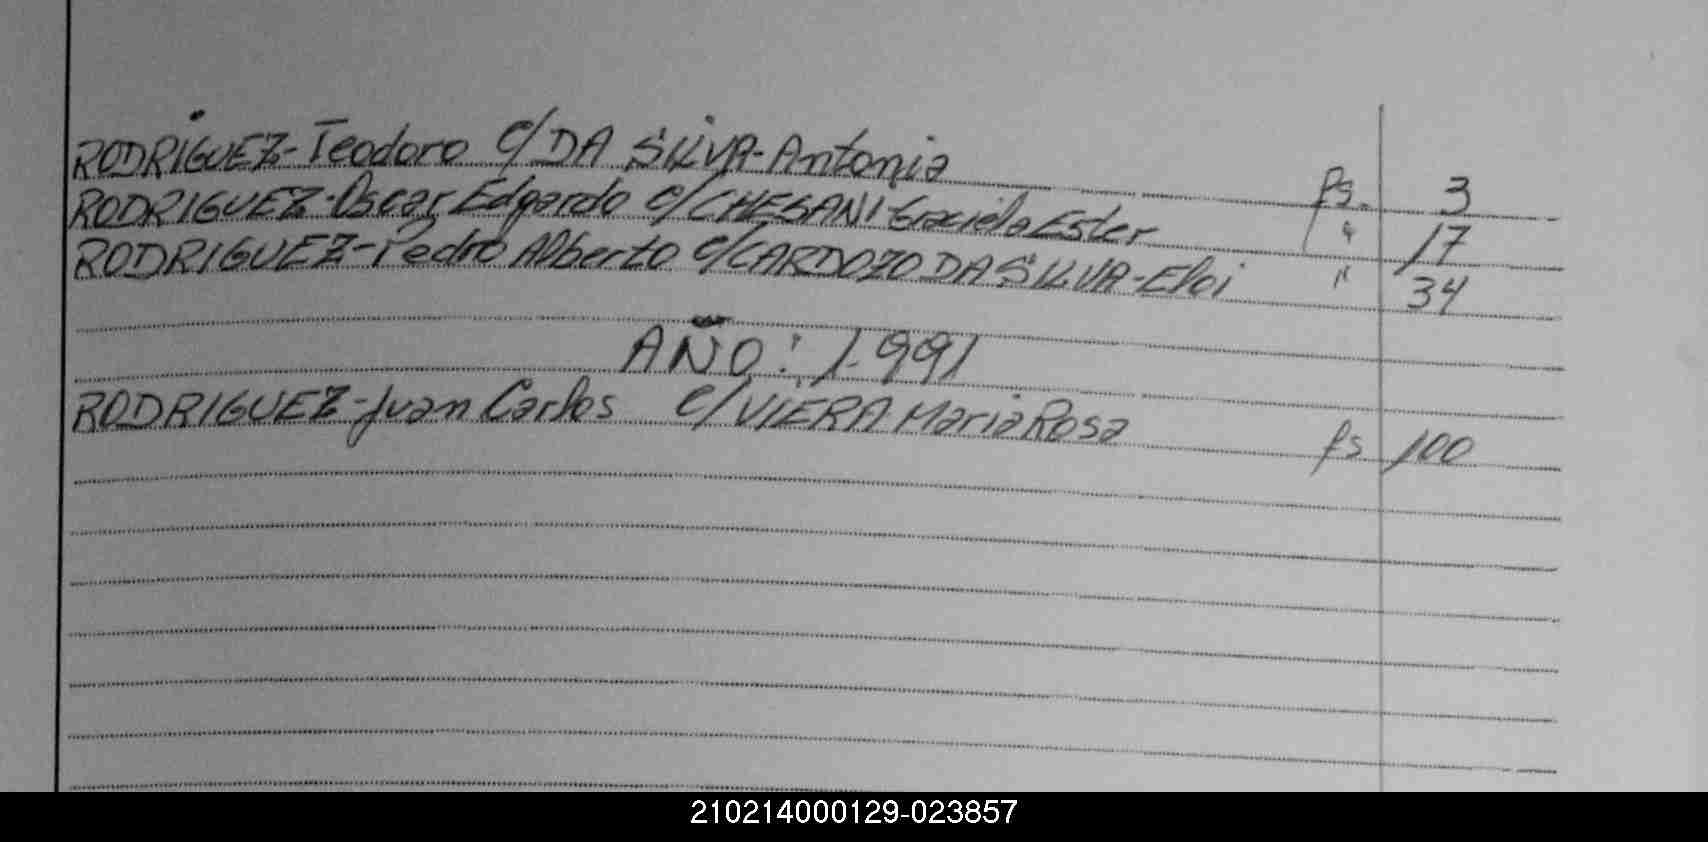 RODRIGUEZ-Teodoro c/ DA SILVA-Antonia fs. 3
RODRIGUEZ-Oscar Edgardo c/ CHESANI Graciela Ester " 17
RODRIGUEZ-Pedro Alberto c/ CARDOZO DA SILVA-Eloi " 34
AÑO: 1.991
RODRIGUEZ-Juan Carlos c/ VIERA Maria Rosa fs 100
210214000129-023857